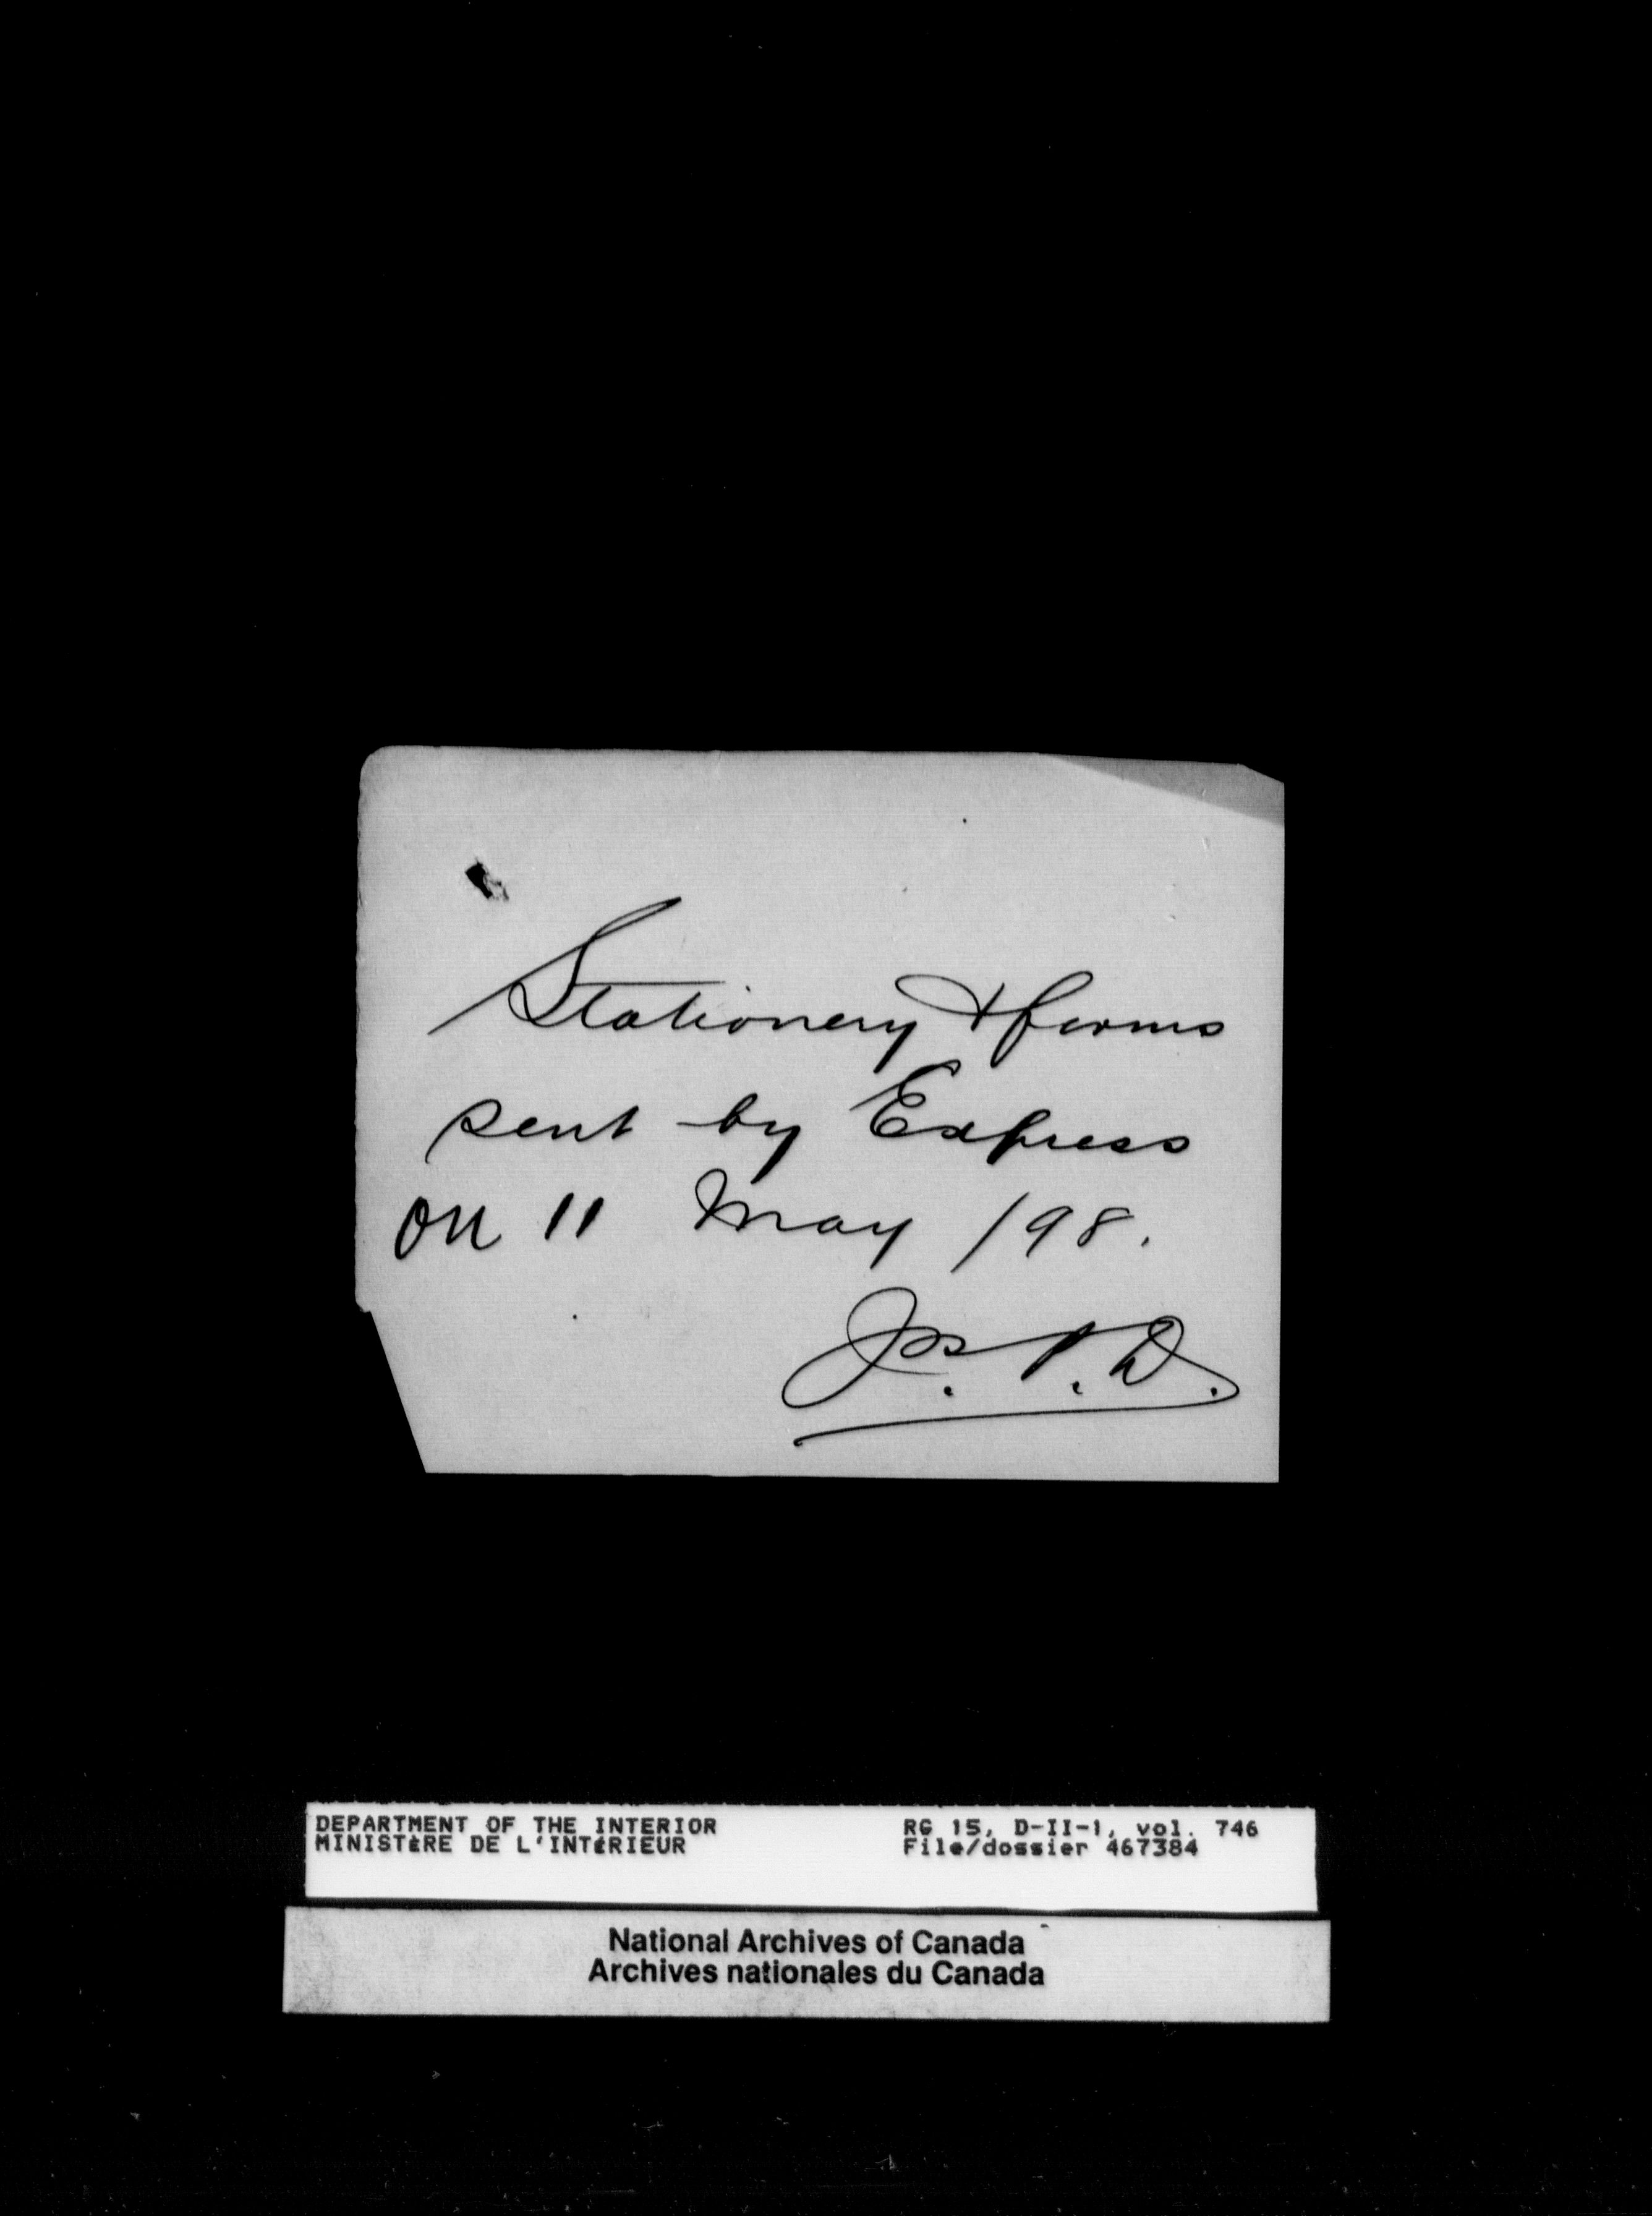 Stationery & forms
sent by Express
on 11 May /98.
DEPARTMENT OF THE INTERIOR
MINISTÈRE DE L'INTÉRIEUR
RG 15, D-II-1, vol. 746
File/dossier 467384
National Archives of Canada
Archives nationales du Canada